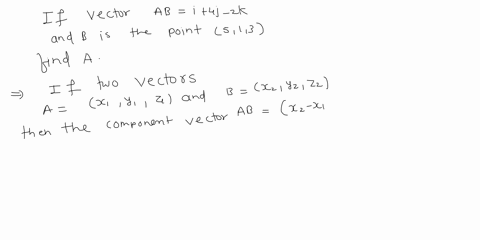 If vector AB = i+4j-2k
and B is the point (5,1,3)
find A.
⇒ If two vectors
A = (x1, y1, z1) and B = (x2, y2, z2)
then the component vector AB = (x2-x1